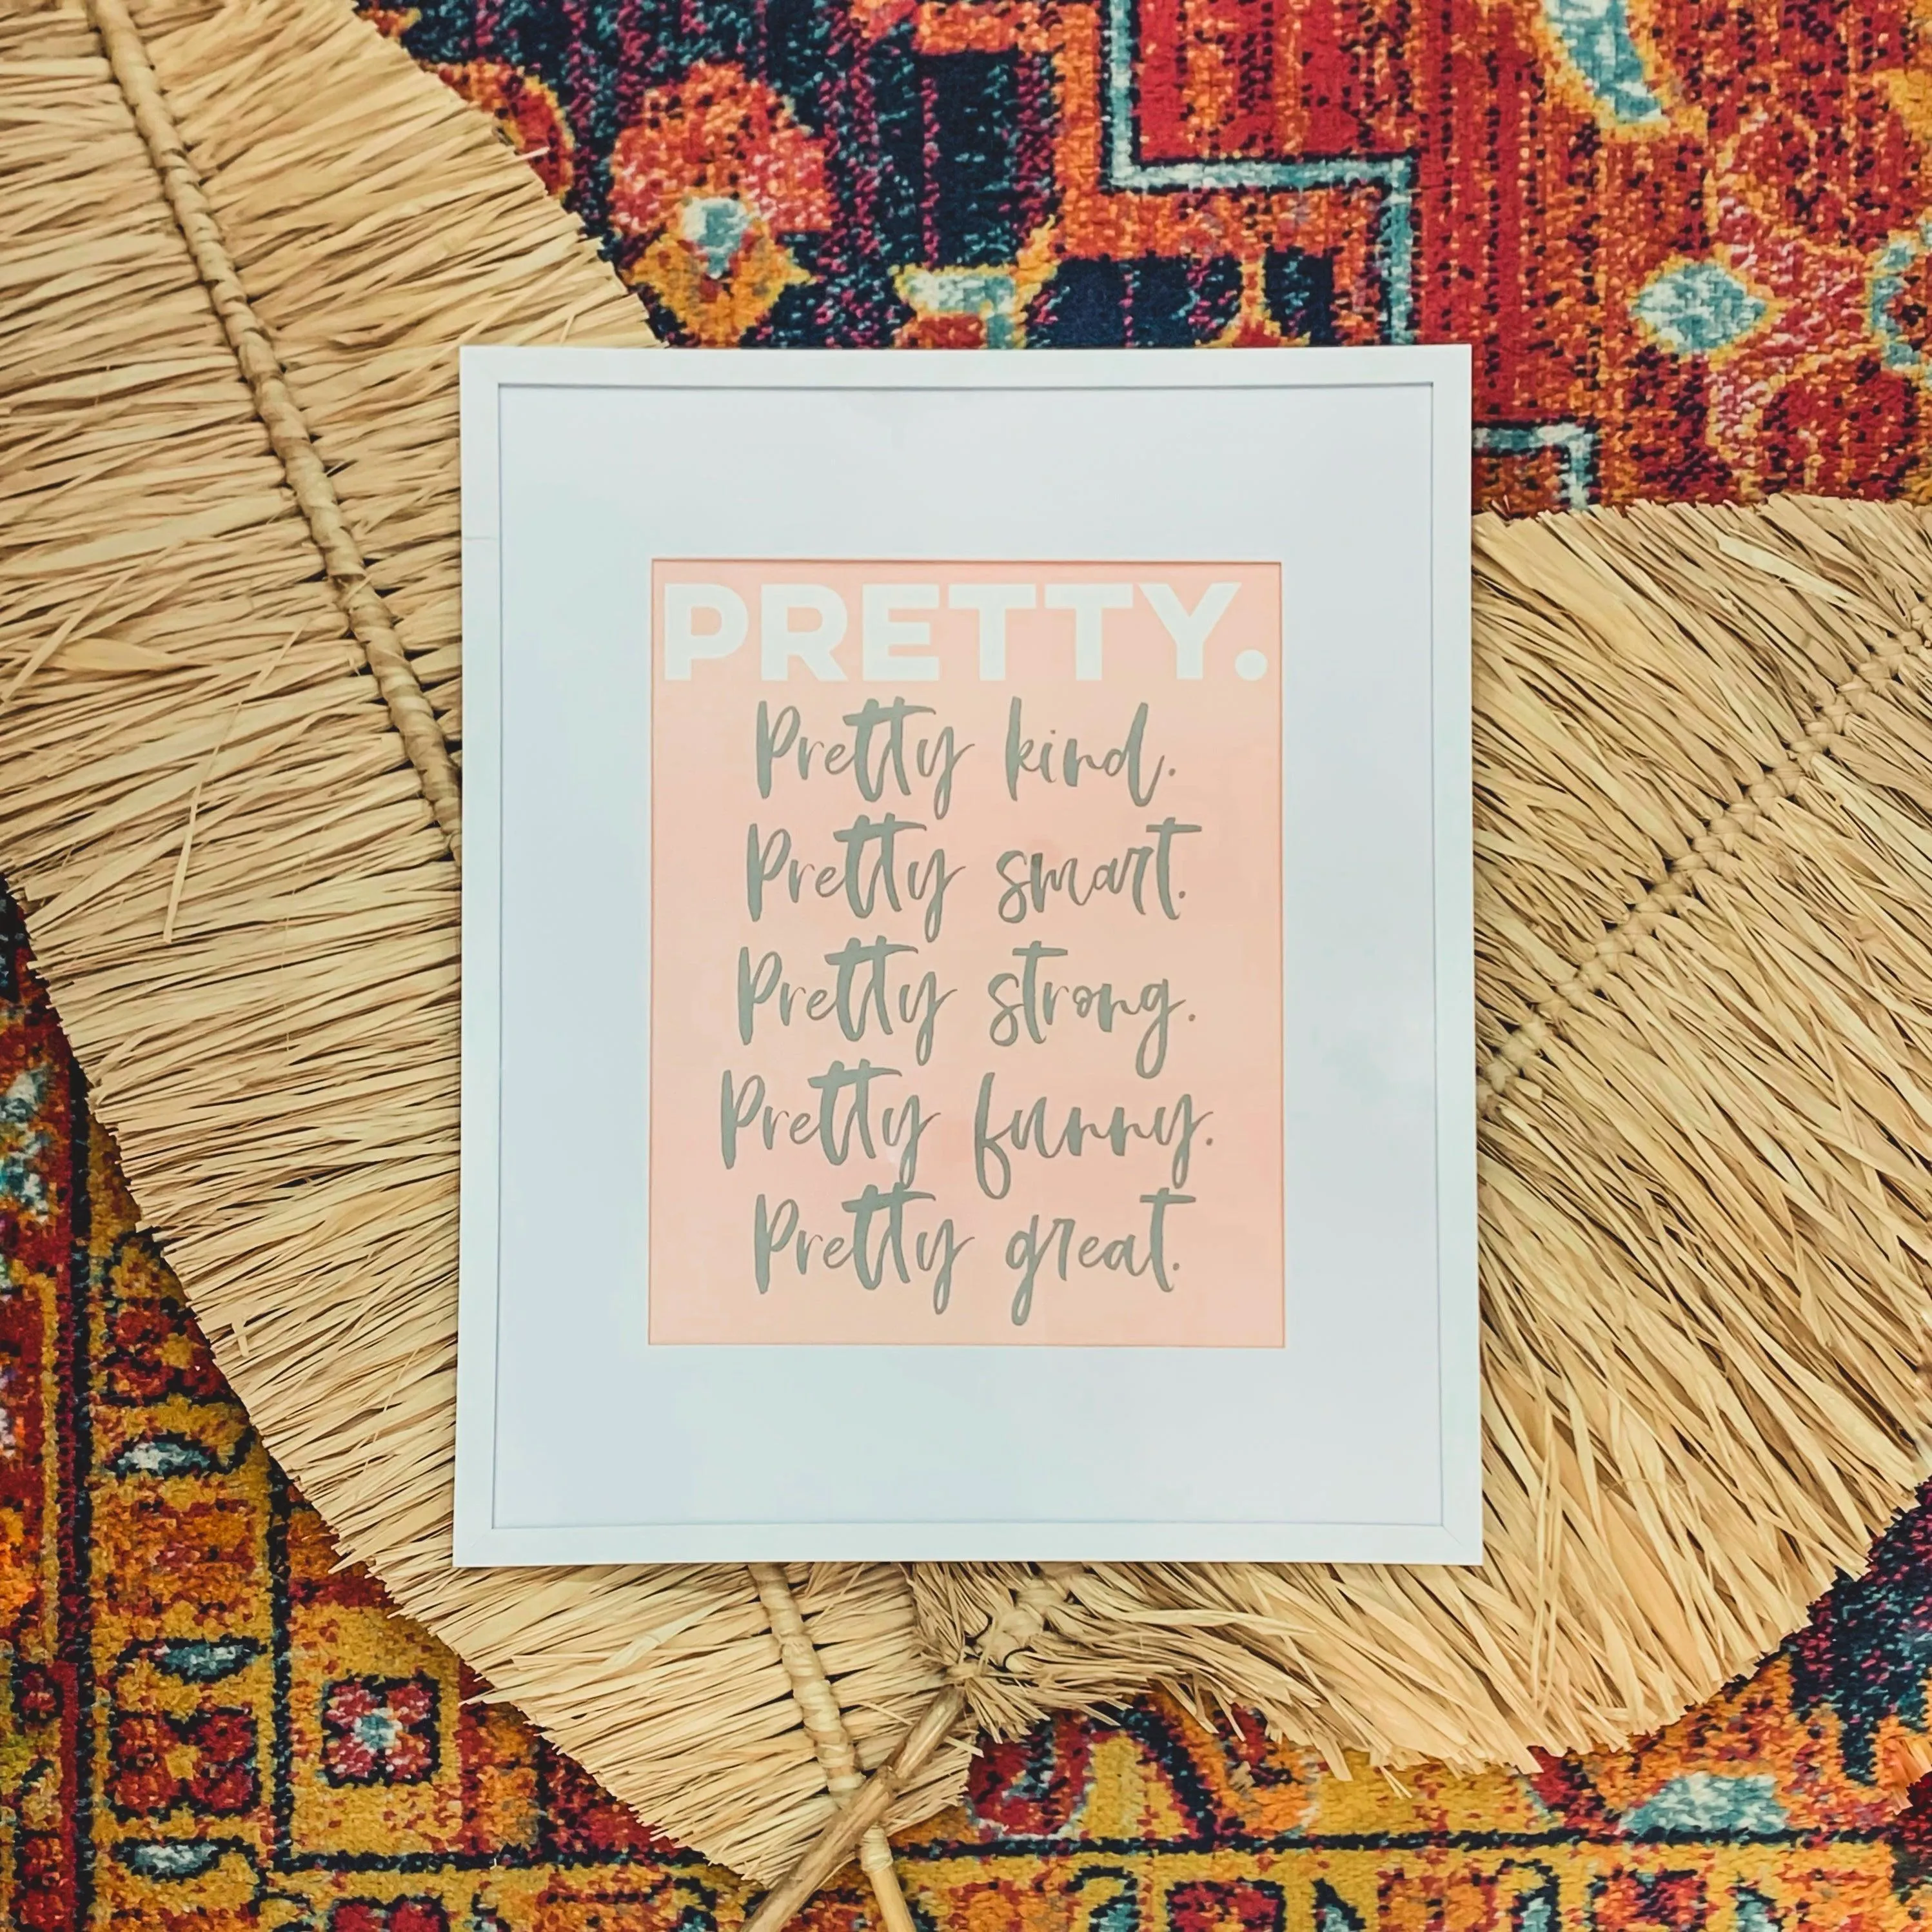 PRETTY.
Pretty kind.
Pretty smart.
Pretty strong.
Pretty funny.
Pretty great.